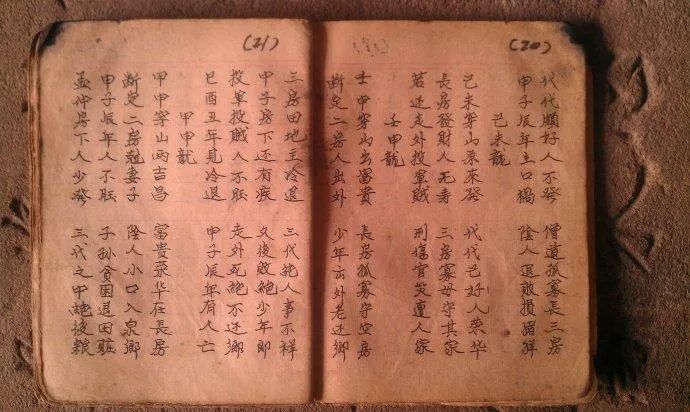 (20)
代代順好人不發 僧道孤寡長三房
甲子辰年主口禍 陰人退敗損猪牲
己未龍
己未穿山原來發 代代己好人荣华
長房發財人无寿 三房寡母守其家
若还走外投軍賊 刑傷官災遭人家
壬甲龍
壬甲穿山出富贵 長房孤寡守空房
断定二房人出外 少年出外老还鄉
(21)
三房田地主冷退 三代絕人事不祥
甲子房下还有疾 久後敗絕少年郎
投軍投賊人不旺 走外死絕不还鄉
巳酉丑年見冷退 甲子辰年有人亡
甲甲龍
甲甲穿山两吉昌 富贵荣华在長房
断定二房尅妻子 陰人小口入泉鄉
甲子辰年人不旺 子孫貧困退田庄
孟仲房下人少發 三代之中絕後粮